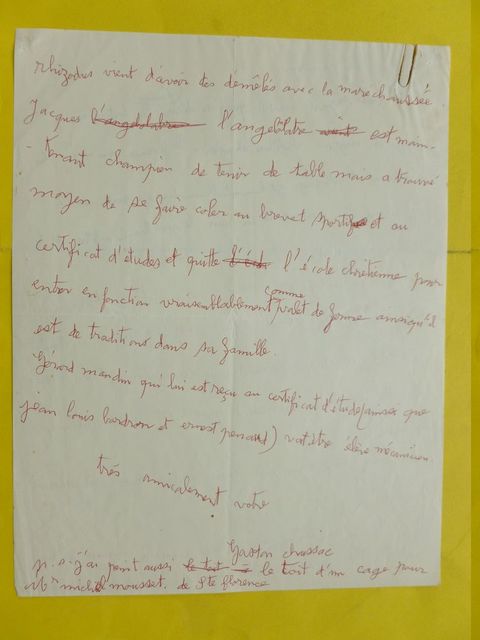 rhizodus vient d'avoir des démêlés avec la maréchaussée
Jacques l'angelolatre est main-
tenant champion de tenir de table mais a trouvé
moyen de se faire coler au brevet sportif et au
certificat d'études et quitte l'école chrétienne pour
entrer en fonction vraisemblablement comme valet de ferme ainsi qu'il
est de traditions dans sa famille.
Gérard mandin qui lui est reçu au certificat d'étude (ainsi que
jean louis bardron et ernest penaud) va être élève mécanicien.
très amicalement votre
Gaston chaissac
p.s. j'ai peint aussi le toit d'un cage pour
Mr michel mousset. de Ste florence